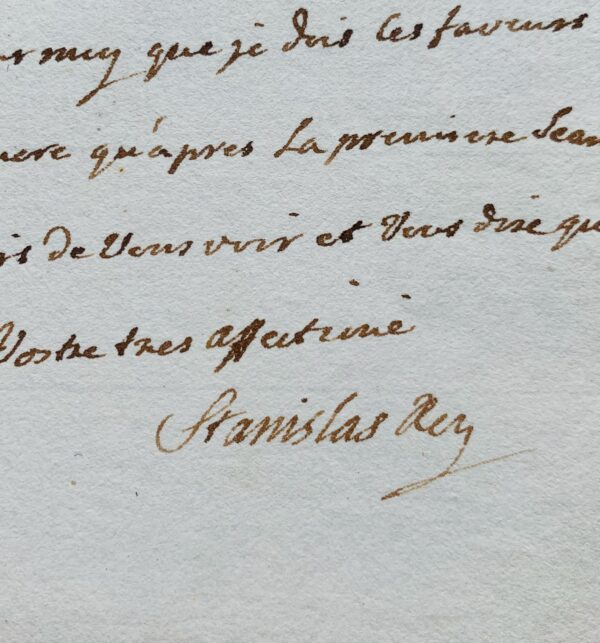 moy que je dois les faveurs
qu'apres La premiere Sean
de Vous voir et Vous dire que
Vostre tres affectioné
Stanislas Roy